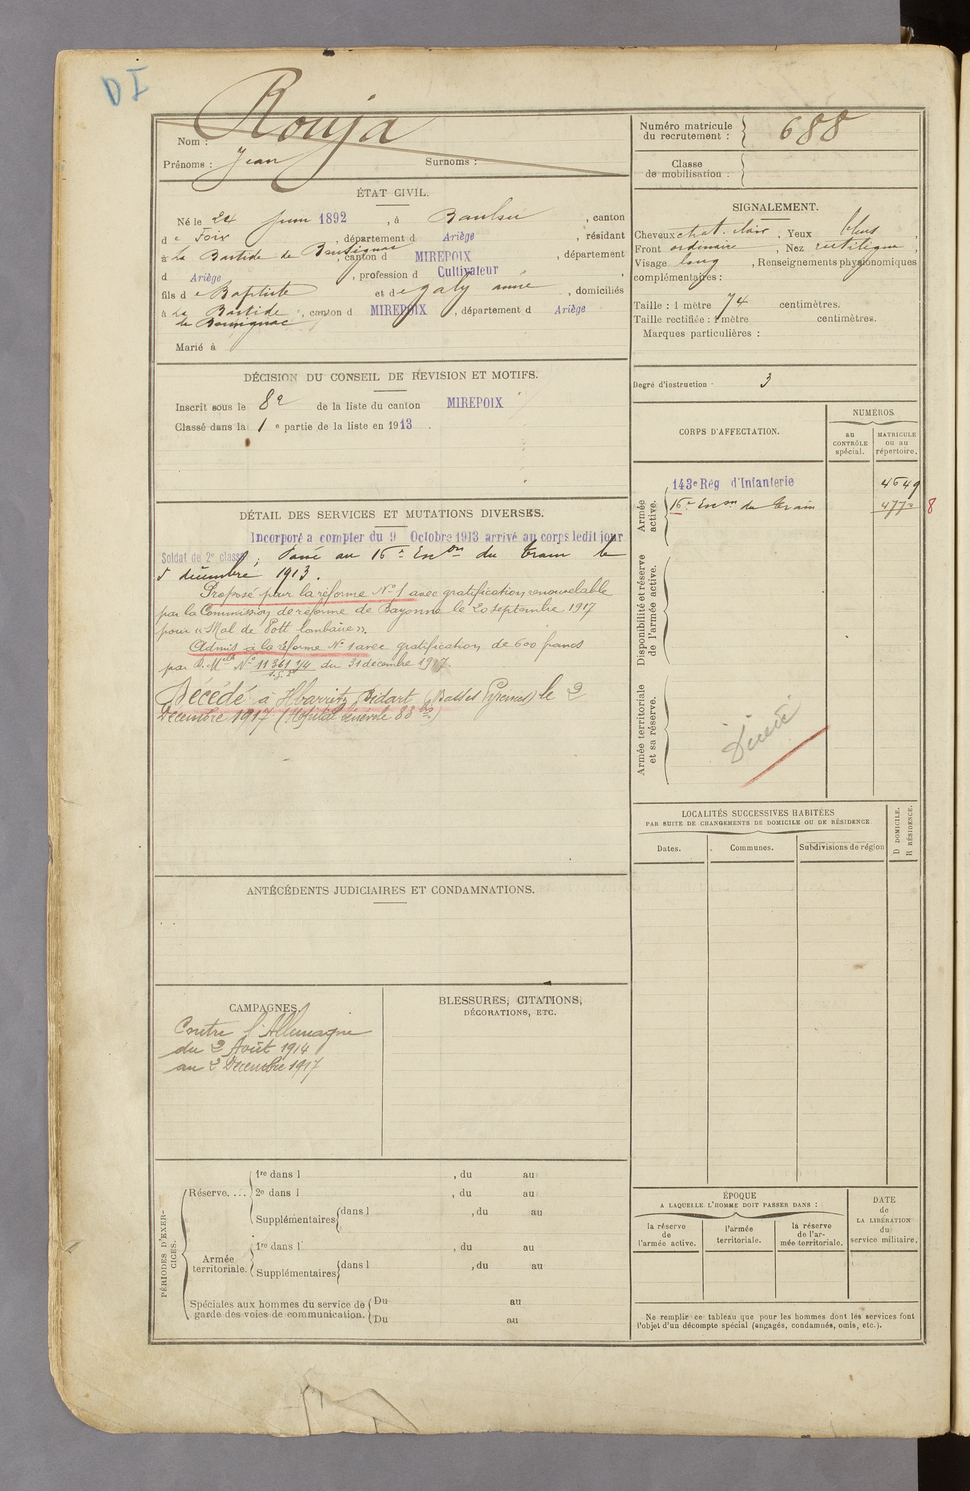 DI
Rouja
Nom :
Prénoms : Jean Surnoms :
Numéro matricule
du recrutement : 688
Classe
de mobilisation :
ÉTAT CIVIL.
Né le 24 Juin 1892, à Baulou, canton
de Foix, département d Ariège, résidant
à La Bastide de Bousignac, canton d MIREPOIX, département
d Ariège, profession d Cultivateur,
fils de Baptiste et de Galy anne, domiciliés
à La Bastide, canton d MIREPOIX, département d Ariège
de Bousignac
Marié à
SIGNALEMENT.
Cheveux chat. clair, Yeux bleus,
Front ordinaire, Nez rectiligne,
Visage long, Renseignements physionomiques
complémentaires :
Taille : 1 mètre 74 centimètres.
Taille rectifiée : 1 mètre centimètres.
Marques particulières :
Degré d'instruction 3
DÉCISION DU CONSEIL DE REVISION ET MOTIFS.
Inscrit sous le 8e de la liste du canton MIREPOIX
Classé dans la 1e partie de la liste en 1913.
CORPS D'AFFECTATION.
NUMÉROS
au
CONTRÔLE
spécial.
MATRICULE
ou au
répertoire.
Armée
active.
143e Rég d'Infanterie 4649
16e Escon du Train 4773 8
Disponibilité et réserve
de l'armée active.
Armée territoriale
et sa réserve.
DÉTAIL DES SERVICES ET MUTATIONS DIVERSES.
Incorporé a compter du 9 Octobre 1913 arrivé au corps ledit jour
Soldat de 2e classe; Passé au 16e Escon du Train le
5 décembre 1913.
Proposé pour la réforme No 1 avec gratification renouvelable
par la Commission de réforme de Bayonne le 20 septembre 1917
pour « Mal de Pott lombaire ».
Admis à la réforme No 1 avec gratification de 600 francs
par D. Mlle No 11361 du 31 décembre 1917.
Décédé à Ilbarritz Bidart (Basses Pyrénées) le 2
Décembre 1917 (Hôpital bénévole 88 bis)
LOCALITÉS SUCCESSIVES HABITÉES
PAR SUITE DE CHANGEMENTS DE DOMICILE OU DE RÉSIDENCE.
Dates. Communes. Subdivisions de région
D DOMICILE.
R RÉSIDENCE.
ANTÉCÉDENTS JUDICIAIRES ET CONDAMNATIONS.
CAMPAGNES
Contre l'Allemagne
du 2 Août 1914
au 2 Décembre 1917
BLESSURES, CITATIONS,
DÉCORATIONS, ETC.
PÉRIODES D'EXER-
CICES.
Réserve....
1re dans l , du au
2e dans l , du au
Supplémentaires dans l , du au
du au
Armée
territoriale.
1re dans l , du au
Supplémentaires dans l , du au
Spéciales aux hommes du service de
garde des voies de communication.
Du au
Du au
ÉPOQUE
A LAQUELLE L'HOMME DOIT PASSER DANS :
la réserve
de
l'armée active.
l'armée
territoriale.
la réserve
de l'ar-
mée territoriale.
DATE
de
LA LIBÉRATION
du
service militaire.
Ne remplir ce tableau que pour les hommes dont les services font
l'objet d'un décompte spécial (engagés, condamnés, omis, etc.).